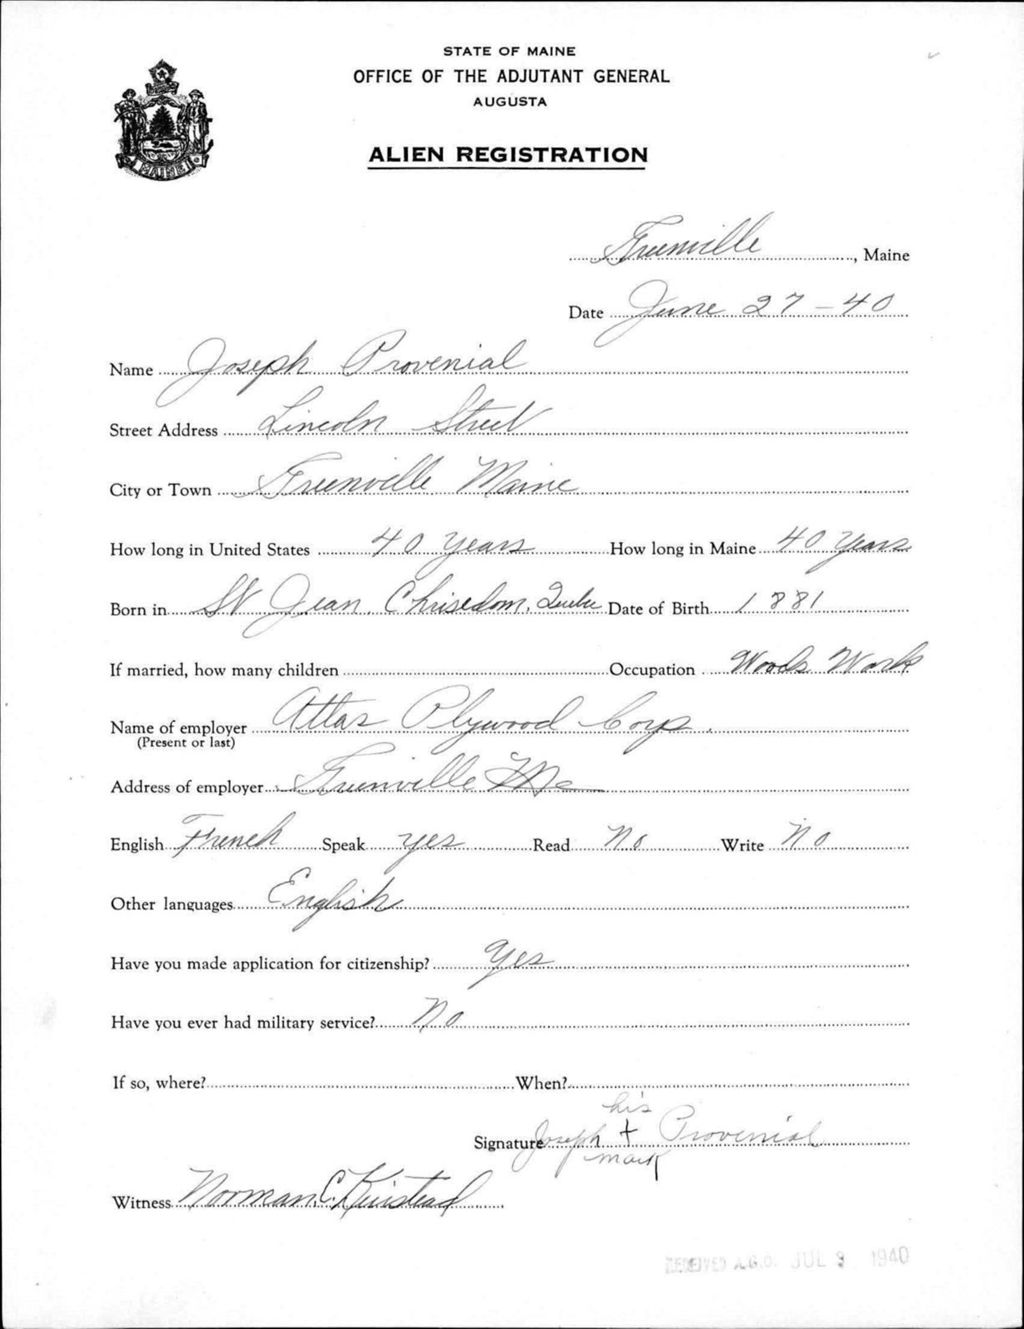 STATE OF MAINE
OFFICE OF THE ADJUTANT GENERAL
AUGUSTA
ALIEN REGISTRATION
MAINE
Greenville, Maine
Date June 27-40
Name Joseph Provenial
Street Address Lincoln Street
City or Town Greenville Maine
How long in United States 40 years How long in Maine 40 years
Born in St Jean Chrisedom, Quebec Date of Birth 1881
If married, how many children Occupation Woods Work
Name of employer Atlas Plywood Corp.
(Present or last)
Address of employer Greenville Me
English French Speak yes Read No Write No
Other languages English
Have you made application for citizenship? Yes
Have you ever had military service? No
If so, where? When?
his
Signature Joseph + Provenial
mark
Witness Norman C. Kinstead
RECEIVED A.G.O. JUL 9 1940